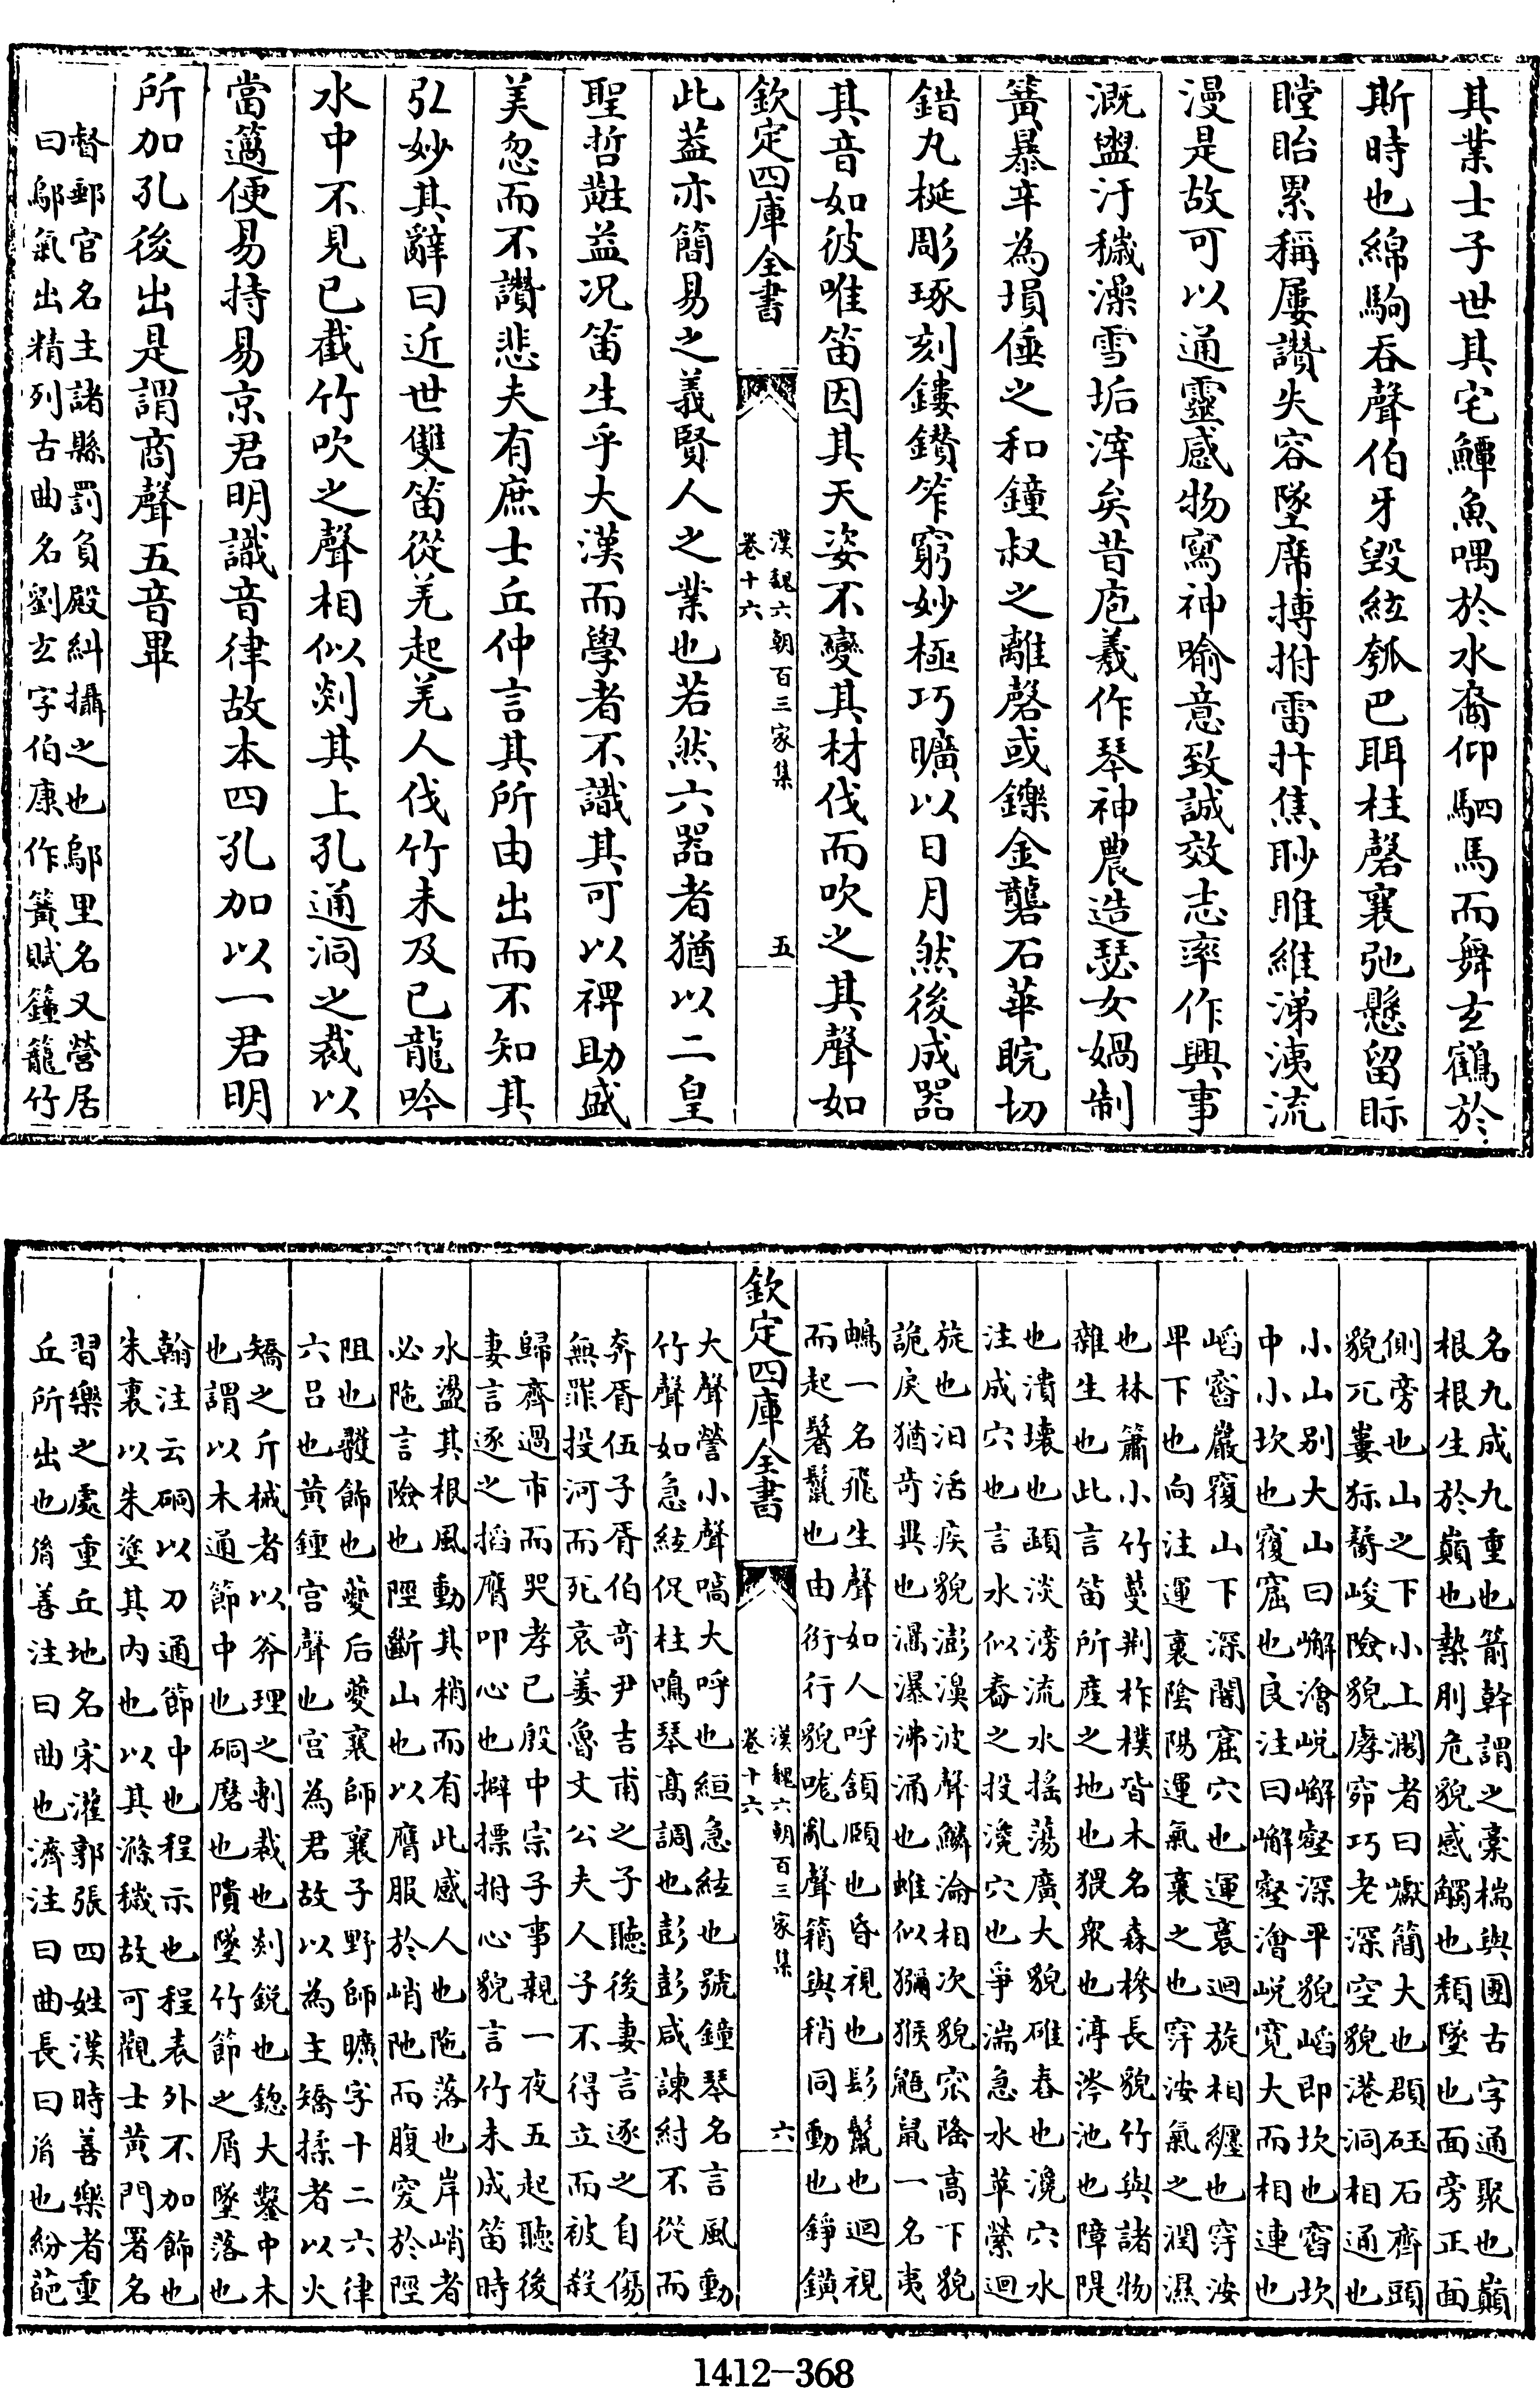 其業士子世其宅鱏魚喁於水裔仰駟馬而舞玄鶴於
斯時也綿駒吞聲伯牙毀絃瓠巴聑柱磬襄弛懸留眎
瞠眙累稱屢讚失容墜席搏拊雷抃焦眇睢維涕洟流
漫是故可以通靈感物寫神喻意致誠效志率作興事
溉盥汙穢澡雪垢滓矣昔庖羲作琴神農造瑟女媧制
簧暴辛為塤倕之和鐘叔之離磬或鑠金礲石華睆切
錯丸梴彫琢刻鏤鑽笮窮妙極巧曠以日月然後成器
其音如彼唯笛因其天姿不變其材伐而吹之其聲如
欽定四庫全書
漢魏六朝百三家集
卷十六
五
此蓋亦簡易之義賢人之業也若然六器者猶以二皇
聖哲黈益况笛生乎大漢而學者不識其可以裨助盛
美忽而不讚悲夫有庶士丘仲言其所由出而不知其
弘妙其辭曰近世雙笛從羌起羌人伐竹未及已龍吟
水中不見已截竹吹之聲相似剡其上孔通洞之裁以
當簻便易持易京君明識音律故本四孔加以一君明
所加孔後出是謂商聲五音畢
督郵官名主諸縣罰負殿糾攝之也鄔里名又營居
曰鄔氣出精列古曲名劉玄字伯康作簧賦籦籠竹
名九成九重也箭幹謂之稾楛與圑古字通聚也巔
根根生於巔也槷刖危貌感觸也頹墜也面旁正面
側旁也山之下小上濶者曰巘簡大也頵砡石齊頭
貌兀婁㹞觺峻險貌庨窌巧老深空貌港洞相通也
小山别大山曰嶰澮峴嶰壑深平貌嵧即坎也窞坎
中小坎也䆴窟也良注曰嶰壑澮峴寬大而相連也
嵧窞巖䆴山下深闇窟穴也運裛迴旋相纒也窏汝
卑下也向注運裛陰陽運氣裛之也窏洝氣之潤濕
也林簫小竹蔓荆柞樸皆木名森槮長貌竹與諸物
雜生也此言笛所産之地也猥衆也渟涔池也障隄
也潰壊也頤淡滂流水搖蕩廣大貌碓舂也㵵穴水
注成穴也言水似舂之投㵵穴也爭湍急水苹縈迴
旋也汩活疾貌澎濞波聲鱗淪相次貌窊隆高下貌
詭戾猶奇異也㵧瀑沸涌也蜼似獼猴鼯鼠一名夷
鵳一名飛生聲如人呼頷頤也昏視也髟鬣也迴視
而起鬐鬣也由衍行貌哤亂聲籟與矟同動也錚鐄
欽定四庫全書
漢魏六朝百三家集
卷十六
六
大聲謍小聲嗃大呼也絙急絃也號鐘琴名言風動
竹聲如急絃促柱鳴琴髙調也彭彭咸諫紂不從而
奔胥伍子胥伯奇尹吉甫之子聽後妻言逐之自傷
無罪投河而死哀姜魯文公夫人子不得立而被殺
歸齊過市而哭孝已殷中宗子事親一夜五起聽後
妻言逐之搯膺叩心也擗摽拊心貌言竹未成笛時
水盪其根風動其梢而有此感人也陁落也岸峭者
必陁言險也陘斷山也以膺服於峭阤而腹突於陘
阻也䝱飾也夔后夔襄師襄子野師曠字十二六律
六呂也黃鍾宫聲也宫為君故以為主矯揉者以火
矯之斤械者以斧理之剸裁也剡銳也鍃大鑿中木
也謂以木通節中也硐磨也隤墜竹節之屑墜落也
翰注云硐以刀通節中也程示也程表外不加飾也
朱裏以朱塗其内也以其滌穢故可觀士黃門署名
習樂之處重丘地名宋灌郭張四姓漢時善樂者重
丘所出也脩善注曰曲也濟注曰曲長曰脩也紛葩
1412-368